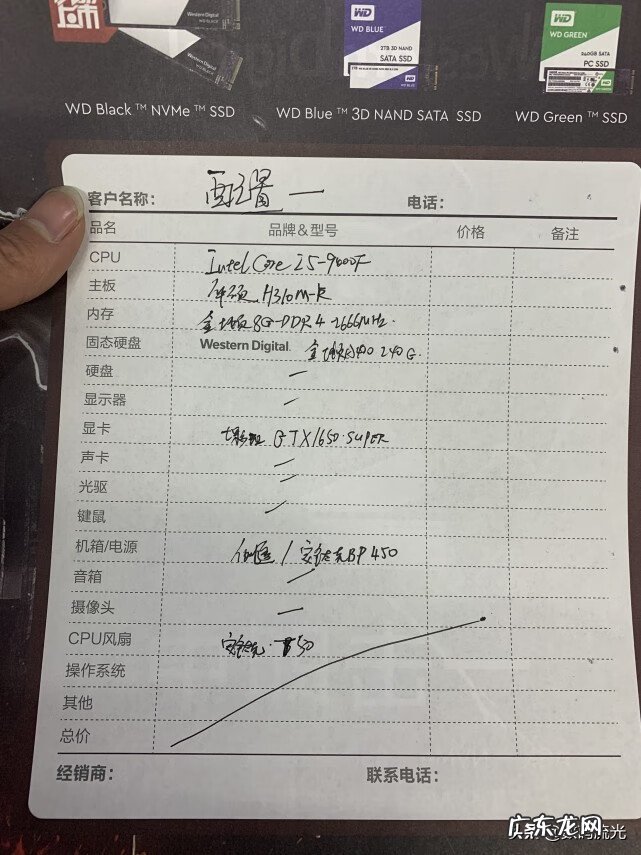 WD BLUE
2TB 3D NAND
SATA SSD
WD GREEN
240GB SATA
PC SSD
WD Black ™ NVMe ™ SSD
WD Blue ™ 3D NAND SATA SSD
WD Green ™ SSD
客户名称： 配置一 电话：
品名 品牌&型号 价格 备注
CPU Intel Core i5-9400F
主板 华硕 H310M-K
内存 金士顿 8G-DDR4 2666MHz.
固态硬盘 Western Digital. 金士顿A400 240G.
硬盘 —
显示器 —
显卡 七彩虹 GTX1650 SUPER
声卡 —
光驱 —
键鼠 —
机箱/电源 / 安钛克BP450
音箱 —
摄像头 —
CPU风扇 安钛克 T50
操作系统
其他
总价
经销商： 联系电话：
广东龙网